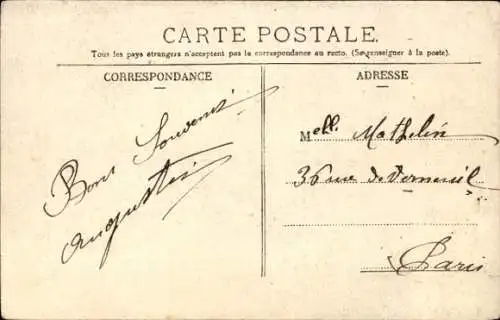 CARTE POSTALE.
Tous les pays étrangers n'acceptent pas la correspondance au recto. (Se renseigner à la poste).
CORRESPONDANCE
ADRESSE
Bons Souvenirs
Augustin
Melle Mathelin
36 rue de Verneuil
Paris